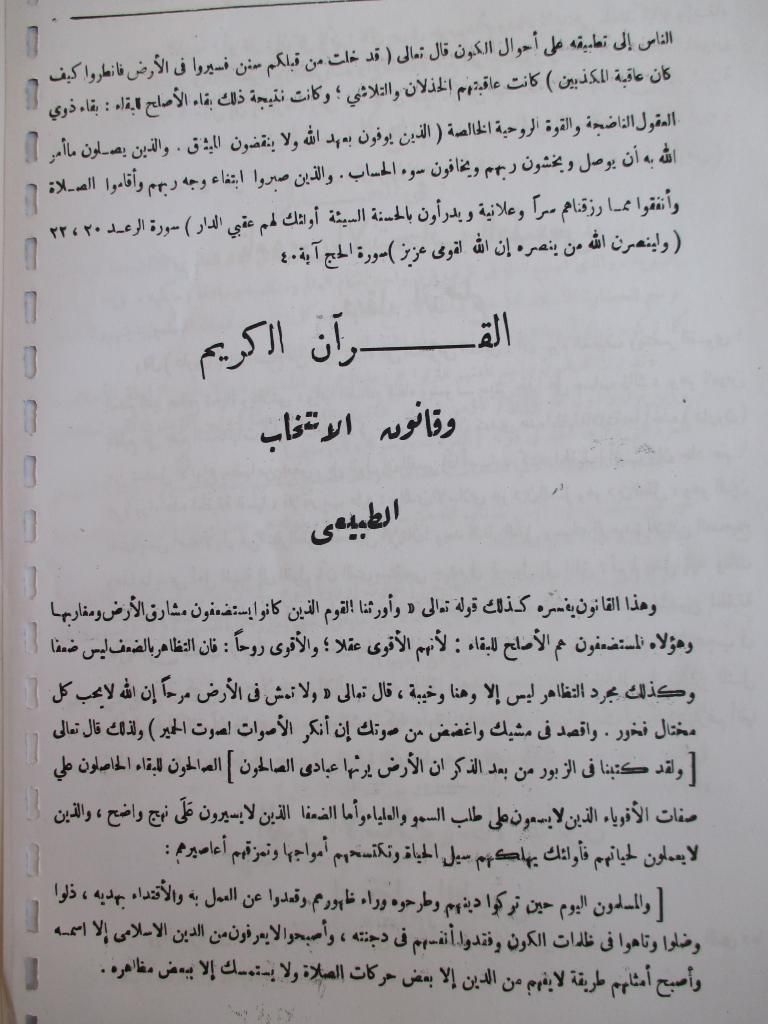 الناس إلى تطبيقه على أحوال الكون قال تعالى ( قد خلت من قبلكم سنن فسيروا فى الأرض فانظروا كيف
كان عاقبة المكذبين ) كانت عاقبتهم الخذلان والتلاشي ؛ وكانت نتيجة ذلك بقاء الأصلح للبقاء : بقاء ذوي
العقول الناضجة والقوة الروحية الخالصة ( الذين يوفون بعهد الله ولا ينقضون الميثاق . والذين يصلون ماأمر
الله به أن يوصل ويخشون ربهم ويخافون سوء الحساب . والذين صبروا ابتغاء وجه ربهم وأقاموا الصلاة
وأنفقوا مما رزقناهم سراً وعلانية ويدرأون بالحسنة السيئة أولئك لهم عقبي الدار ) سورة الرعد ٢٠ ، ٢٢
( ولينصرن الله من ينصره إن الله لقوى عزيز ) سورة الحج آية ٤٠
القرآن الكريم
وقانون الانتخاب
الطبيعى
وهذا القانون يفسره كذلك قوله تعالى « وأورثنا القوم الذين كانوا يستضعفون مشارق الأرض ومغاربها
وهؤلاه المستضعفون هم الأصلح للبقاء : لأنهم الأقوى عقلا ؛ والأقوى روحاً : فان التظاهر بالضعف ليس ضعفا
وكذلك مجرد التظاهر ليس إلا وهنا وخيبة ، قال تعالى « ولا تمش فى الأرض مرحاً إن الله لايحب كل
مختال فخور . واقصد فى مشيك واغضض من صوتك إن أنكر الأصوات لصوت الحمير ) ولذلك قال تعالى
[ ولقد كتبنا فى الزبور من بعد الذكر ان الأرض يرثها عبادى الصالحون ] الصالحون للبقاء الحاصلون علي
صفات الأقوياء الذين لايسعون على طلب السمو والعلياء وأما الضعفا الذين لايسيرون عَلَى نهج واضح ، والذين
لايعملون لحياتهم فأولئك يهلكهم سيل الحياة وتكتسحهم أمواجها وتمزقهم أعاصيرهم :
[ والمسلمون اليوم حين تركوا دينهم وطرحوه وراء ظهورهم وقعدوا عن العمل به والأقتداء بهديه ، ذلوا
وضلوا وتاهوا فى ظلمات الكون وفقدوا أنفسهم فى دجنته ، وأصبحوا لايعرفون من الدين الاسلامى إلا اسمه
وأصبح أمثلهم طريقة لايفهم من الدين إلا بعض حركات الصلاة ولا يستمسك إلا ببعض مظاهره .